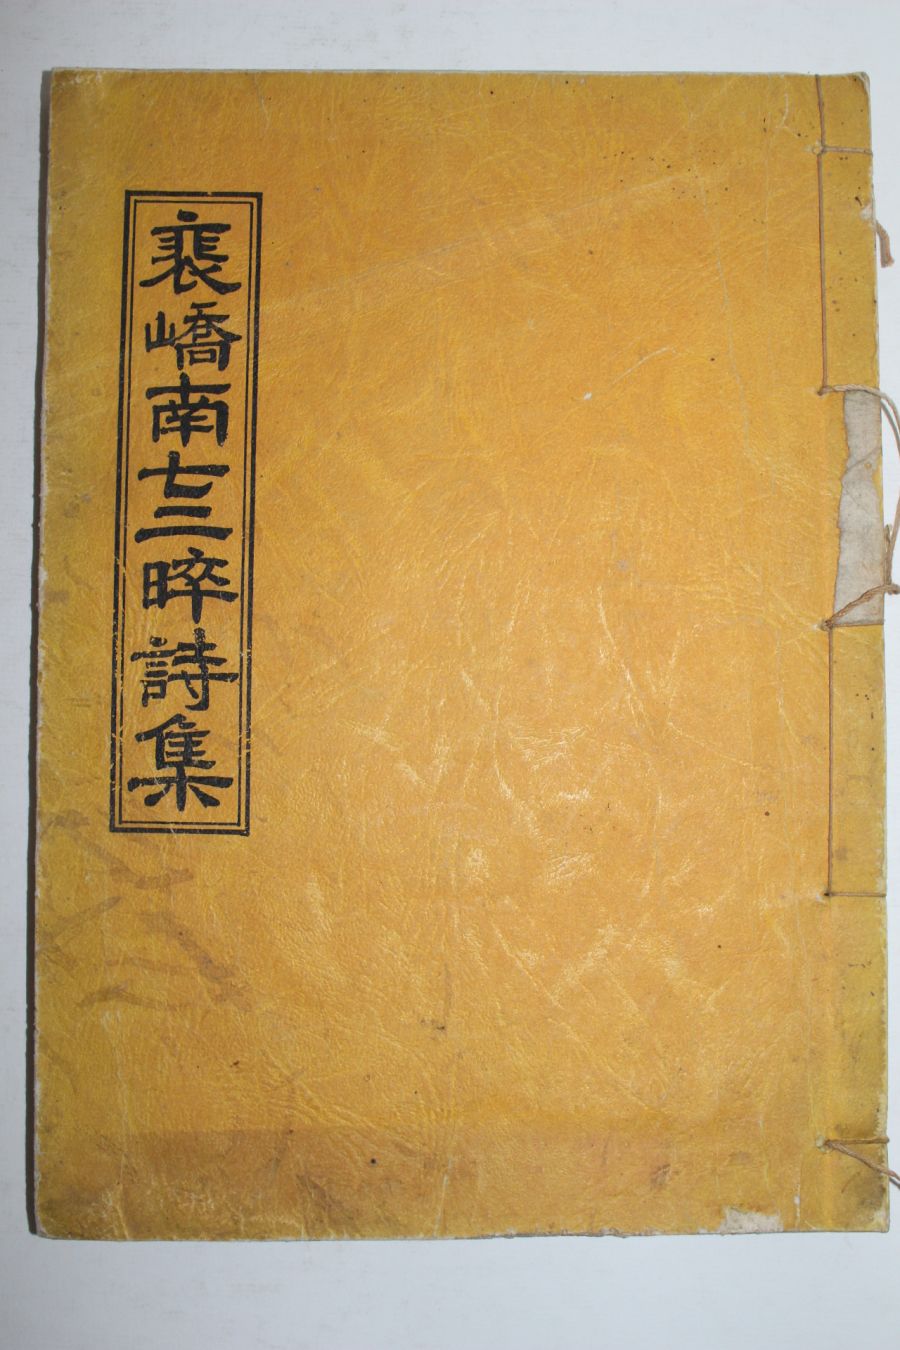 裵嶠南七三晬詩集